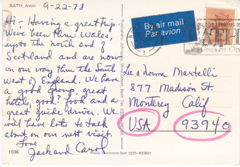 BATH, Avon
9-22-78
By air mail
Par avion
Hi - Having a great trip
We've been thru Wales,
up to the north end of
Scotland and are now
on our way thru the
of England. We have
a good group, great
hotels, good food and a
great guide & driver. We
will have lots to talk
about on our next visit
Love
Jack and Carol
Lee & Norma Martelli
877 Madison St.
Monterey Calif
USA 93940